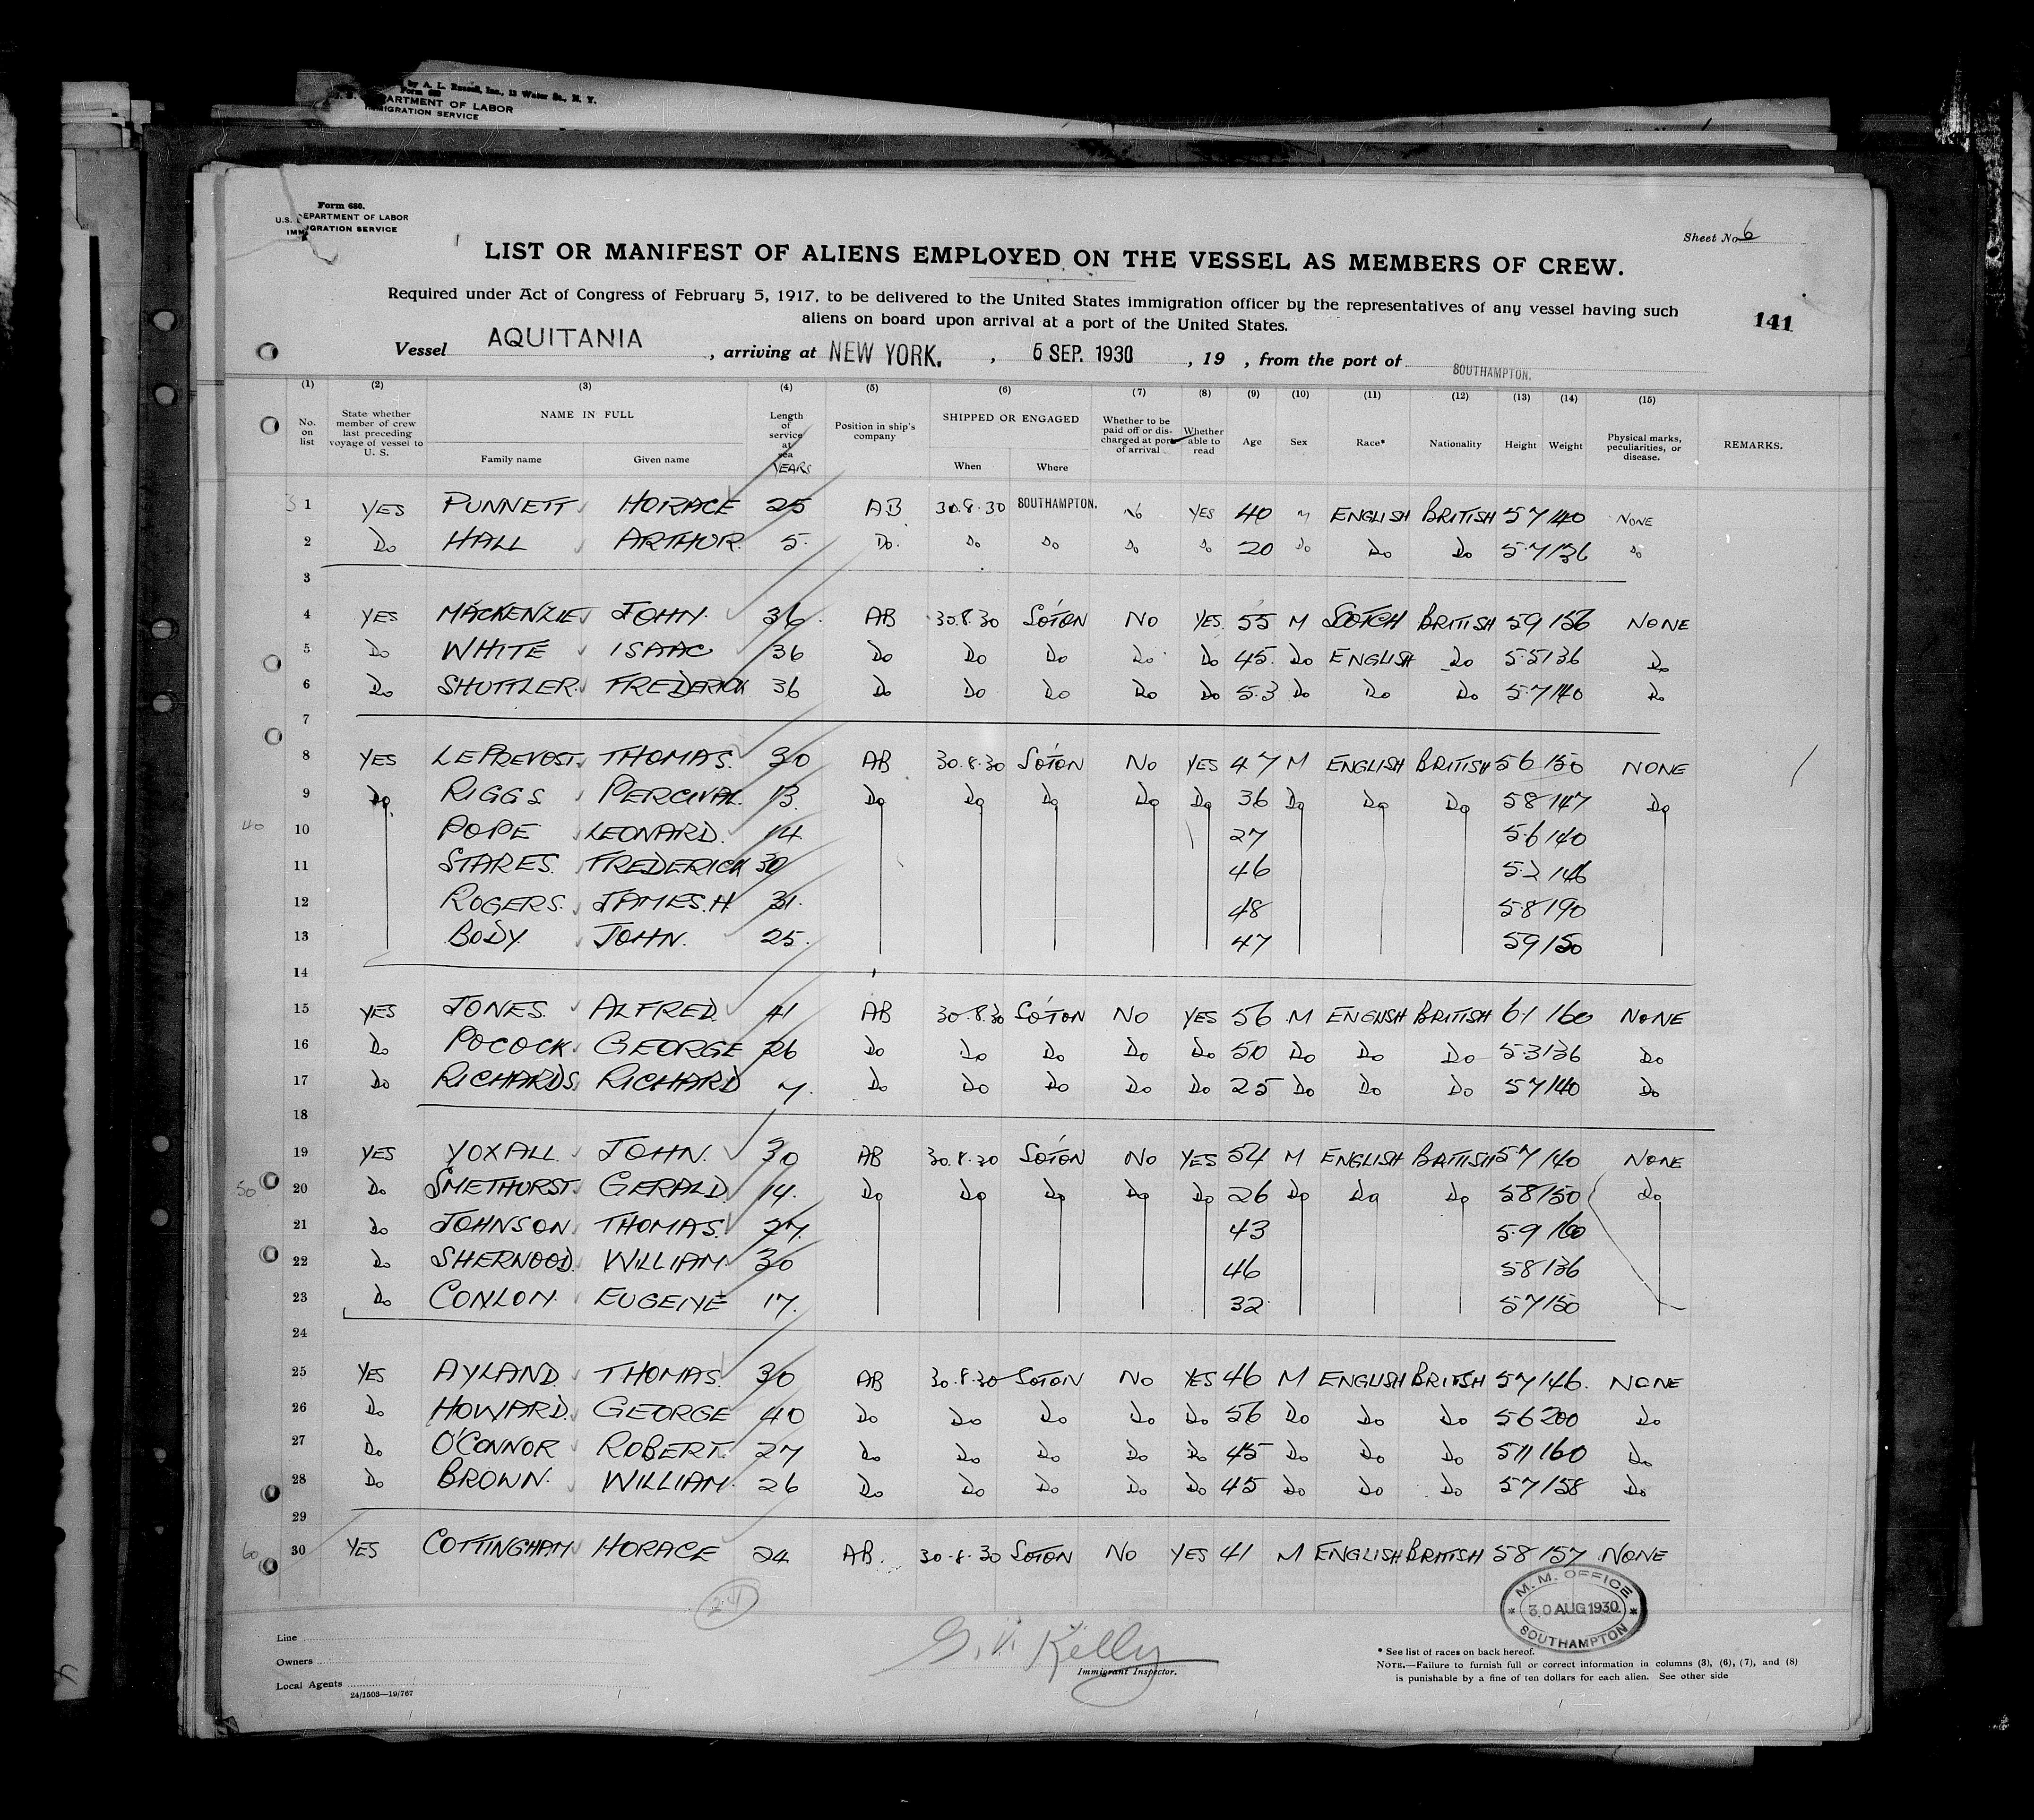 by A. L. Russell, Inc., 13 Water St., N. Y.
Form 680
DEPARTMENT OF LABOR
IMMIGRATION SERVICE
Form 680.
U.S. DEPARTMENT OF LABOR
IMMIGRATION SERVICE
Sheet No 6
LIST OR MANIFEST OF ALIENS EMPLOYED ON THE VESSEL AS MEMBERS OF CREW.
Required under Act of Congress of February 5, 1917, to be delivered to the United States immigration officer by the representatives of any vessel having such
aliens on board upon arrival at a port of the United States.
141
Vessel AQUITANIA, arriving at NEW YORK. , 6 SEP. 1930 , 19 , from the port of SOUTHAMPTON.
(1) (2) (3) (4) (5) (6) (7) (8) (9) (10) (11) (12) (13) (14) (15)
No. on list State whether member of crew last preceding voyage of vessel to U. S. NAME IN FULL Family name Given name Length of service at sea YEARS Position in ship's company SHIPPED OR ENGAGED When Where Whether to be paid off or discharged at port of arrival Whether able to read Age Sex Race* Nationality Height Weight Physical marks, peculiarities, or disease. REMARKS.
1 YES PUNNETT HORACE 25 AB 30.8.30 SOUTHAMPTON. No YES 40 M ENGLISH BRITISH 5 7 140 NONE
2 Do HALL ARTHUR. 5. Do. Do Do Do Do 20 Do Do Do 5.7 136 Do
3
4 YES MACKENZIE JOHN. 36. AB 30.8.30 SO'TON NO YES. 55 M SCOTCH BRITISH 5 9 156 NONE
5 Do WHITE ISAAC 36 Do Do Do Do Do 45. Do ENGLISH Do 5.5 136 Do
6 Do SHUTTLER. FREDERICK 36 Do Do Do Do Do 5.3 Do Do Do 5.7 140 Do
7
8 YES LE PREVOST. THOMAS. 30 AB 30.8.30 SO'TON No YES 47 M ENGLISH BRITISH 5 6 150 NONE
9 Do RIGGS PERCIVAL. 13. Do Do Do Do Do 36 Do Do Do 5 8 147 Do
40 10 POPE LEONARD. 14. 27 5.6 140
11 STARES. FREDERICK 30 46 5.2 146
12 ROGERS. JAMES.H 31. 48 5.8 190
13 BODY. JOHN. 25. 47 5 9 150
14
15 YES JONES. ALFRED. 41 AB 30.8.30 SO'TON NO YES 56 M ENGLISH BRITISH 6.1 160 NONE
16 Do POCOCK. GEORGE 26 Do Do Do Do Do 50 Do Do Do 5.3 136 Do
17 Do RICHARDS RICHARD 7. Do Do Do Do Do 25 Do Do Do 5 7 140 Do
18
19 YES YOXALL. JOHN. 30 AB 30.8.30 SO'TON No YES 54 M ENGLISH BRITISH 5 7 140 NONE
50 20 Do SMETHURST. GERALD. 14. Do Do Do Do Do 26 Do Do Do 5 8 150 Do
21 Do JOHNSON THOMAS. 27. 43 5.9 160
22 Do SHERWOOD. WILLIAM 30 46 5 8 136
23 Do CONLON. EUGENE 17. 32 5 7 150
24
25 YES AYLAND. THOMAS. 30 AB 30.8.30 SOTON No YES 46 M ENGLISH BRITISH 5 7 146. NONE
26 Do HOWARD. GEORGE 40 Do Do Do Do Do 56 Do Do Do 5 6 200 Do
27 Do O'CONNOR ROBERT. 27 Do Do Do Do Do 45 Do Do Do 5 11 160 Do
28 Do BROWN. WILLIAM. 26 Do Do Do Do Do 45 Do Do Do 5 7 158 Do
29
60 30 YES COTTINGHAM HORACE 24 AB. 30.8.30 SOTON No YES 41 M ENGLISH BRITISH 5 8 157 NONE
M. M. OFFICE
30 AUG 1930
SOUTHAMPTON
Line
Owners
Local Agents
24/1503—19/767
Kelly
Immigrant Inspector.
* See list of races on back hereof.
NOTE.—Failure to furnish full or correct information in columns (3), (6), (7), and (8)
is punishable by a fine of ten dollars for each alien. See other side